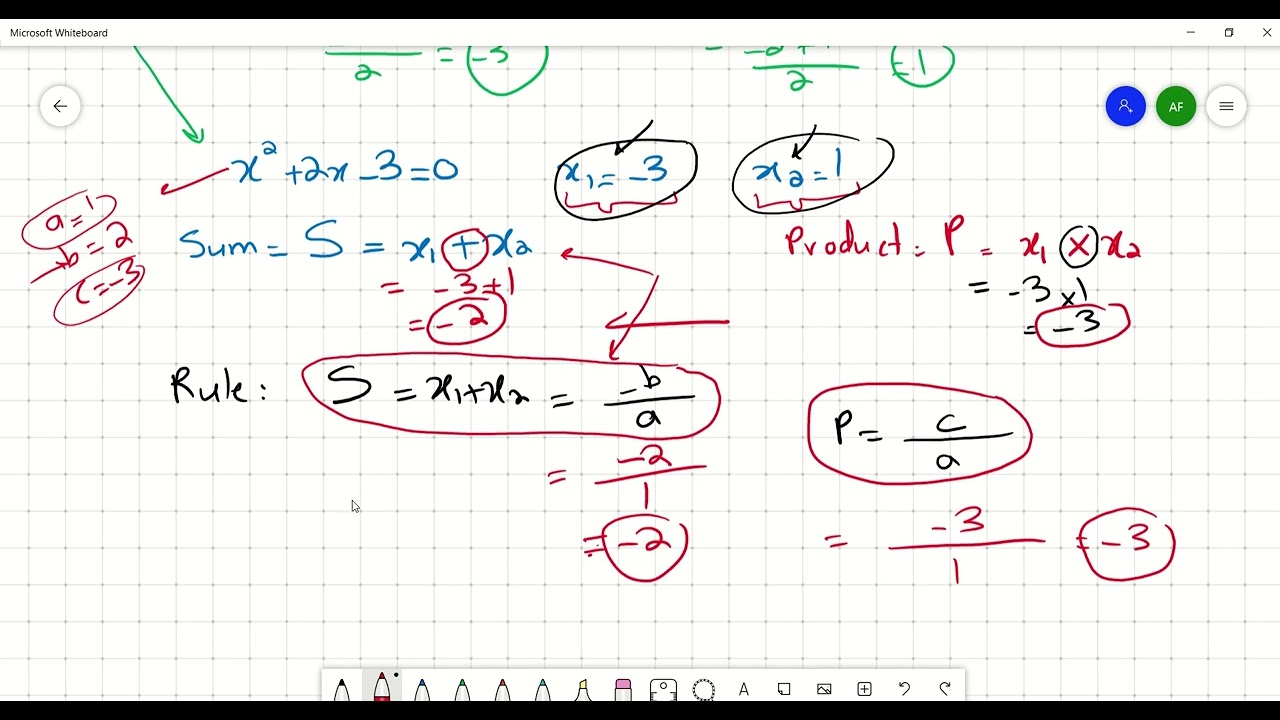 Microsoft Whiteboard
2 = -3
2 = 1
AF
x² + 2x - 3 = 0
x₁ = -3
x₂ = 1
a = 1
b = 2
c = -3
Sum = S = x₁ + x₂
= -3 + 1
= -2
Product = P = x₁ × x₂
= -3 × 1
= -3
Rule: S = x₁ + x₂ = -b/a
= -2/1
= -2
P = c/a
= -3/1 = -3
A